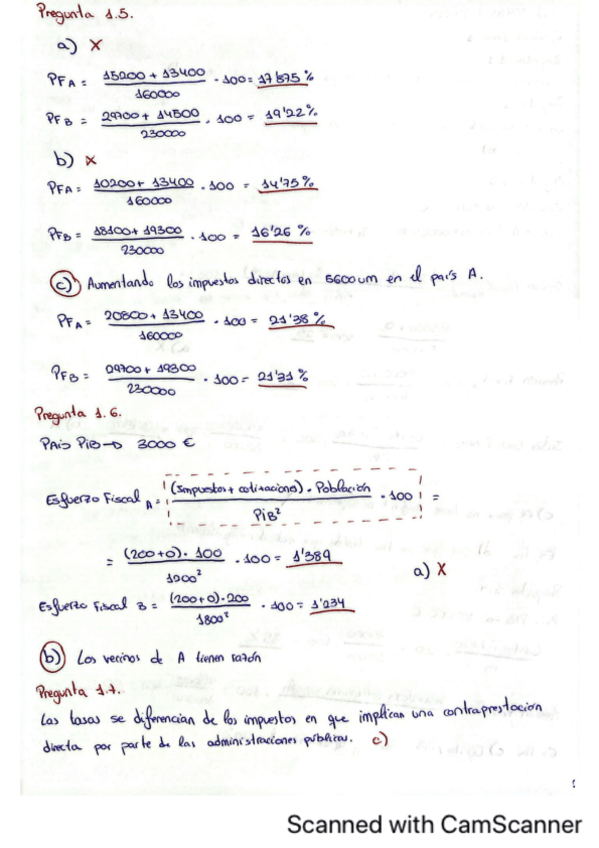 Pregunta 1.5.
a) X
PFA = 15200 + 13400 / 160000 · 100 = 17'875 %
PFB = 29700 + 14500 / 230000 · 100 = 19'22 %
b) X
PFA = 10200 + 13400 / 160000 · 100 = 14'75 %
PFB = 18100 + 19300 / 230000 · 100 = 16'26 %
c) Aumentando los impuestos directos en 5600 um en el país A.
PFA = 20800 + 13400 / 160000 · 100 = 21'38 %
PFB = 29700 + 19300 / 230000 · 100 = 21'31 %
Pregunta 1.6.
PAÍS PIB → 3000 €
Esfuerzo Fiscal A = (Impuestos + cotizaciones) · Población / PiB² · 100 =
= (200+0) · 100 / 1200² · 100 = 1'389
a) X
Esfuerzo Fiscal B = (200+0) · 200 / 1800² · 100 = 1'234
b) Los vecinos de A tienen razón
Pregunta 1.7.
Las tasas se diferencian de los impuestos en que implican una contraprestación
directa por parte de las administraciones públicas. c)
1
Scanned with CamScanner